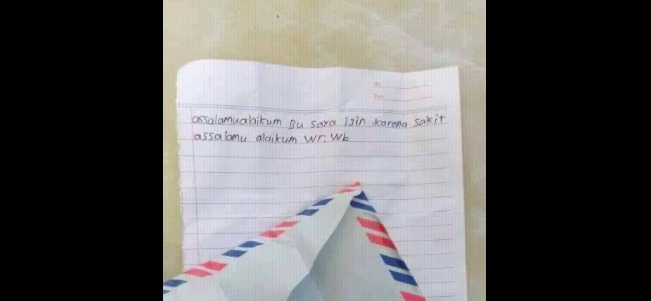 assalamualaikum Bu saya izin karena sakit
assalamu alaikum Wr. Wb